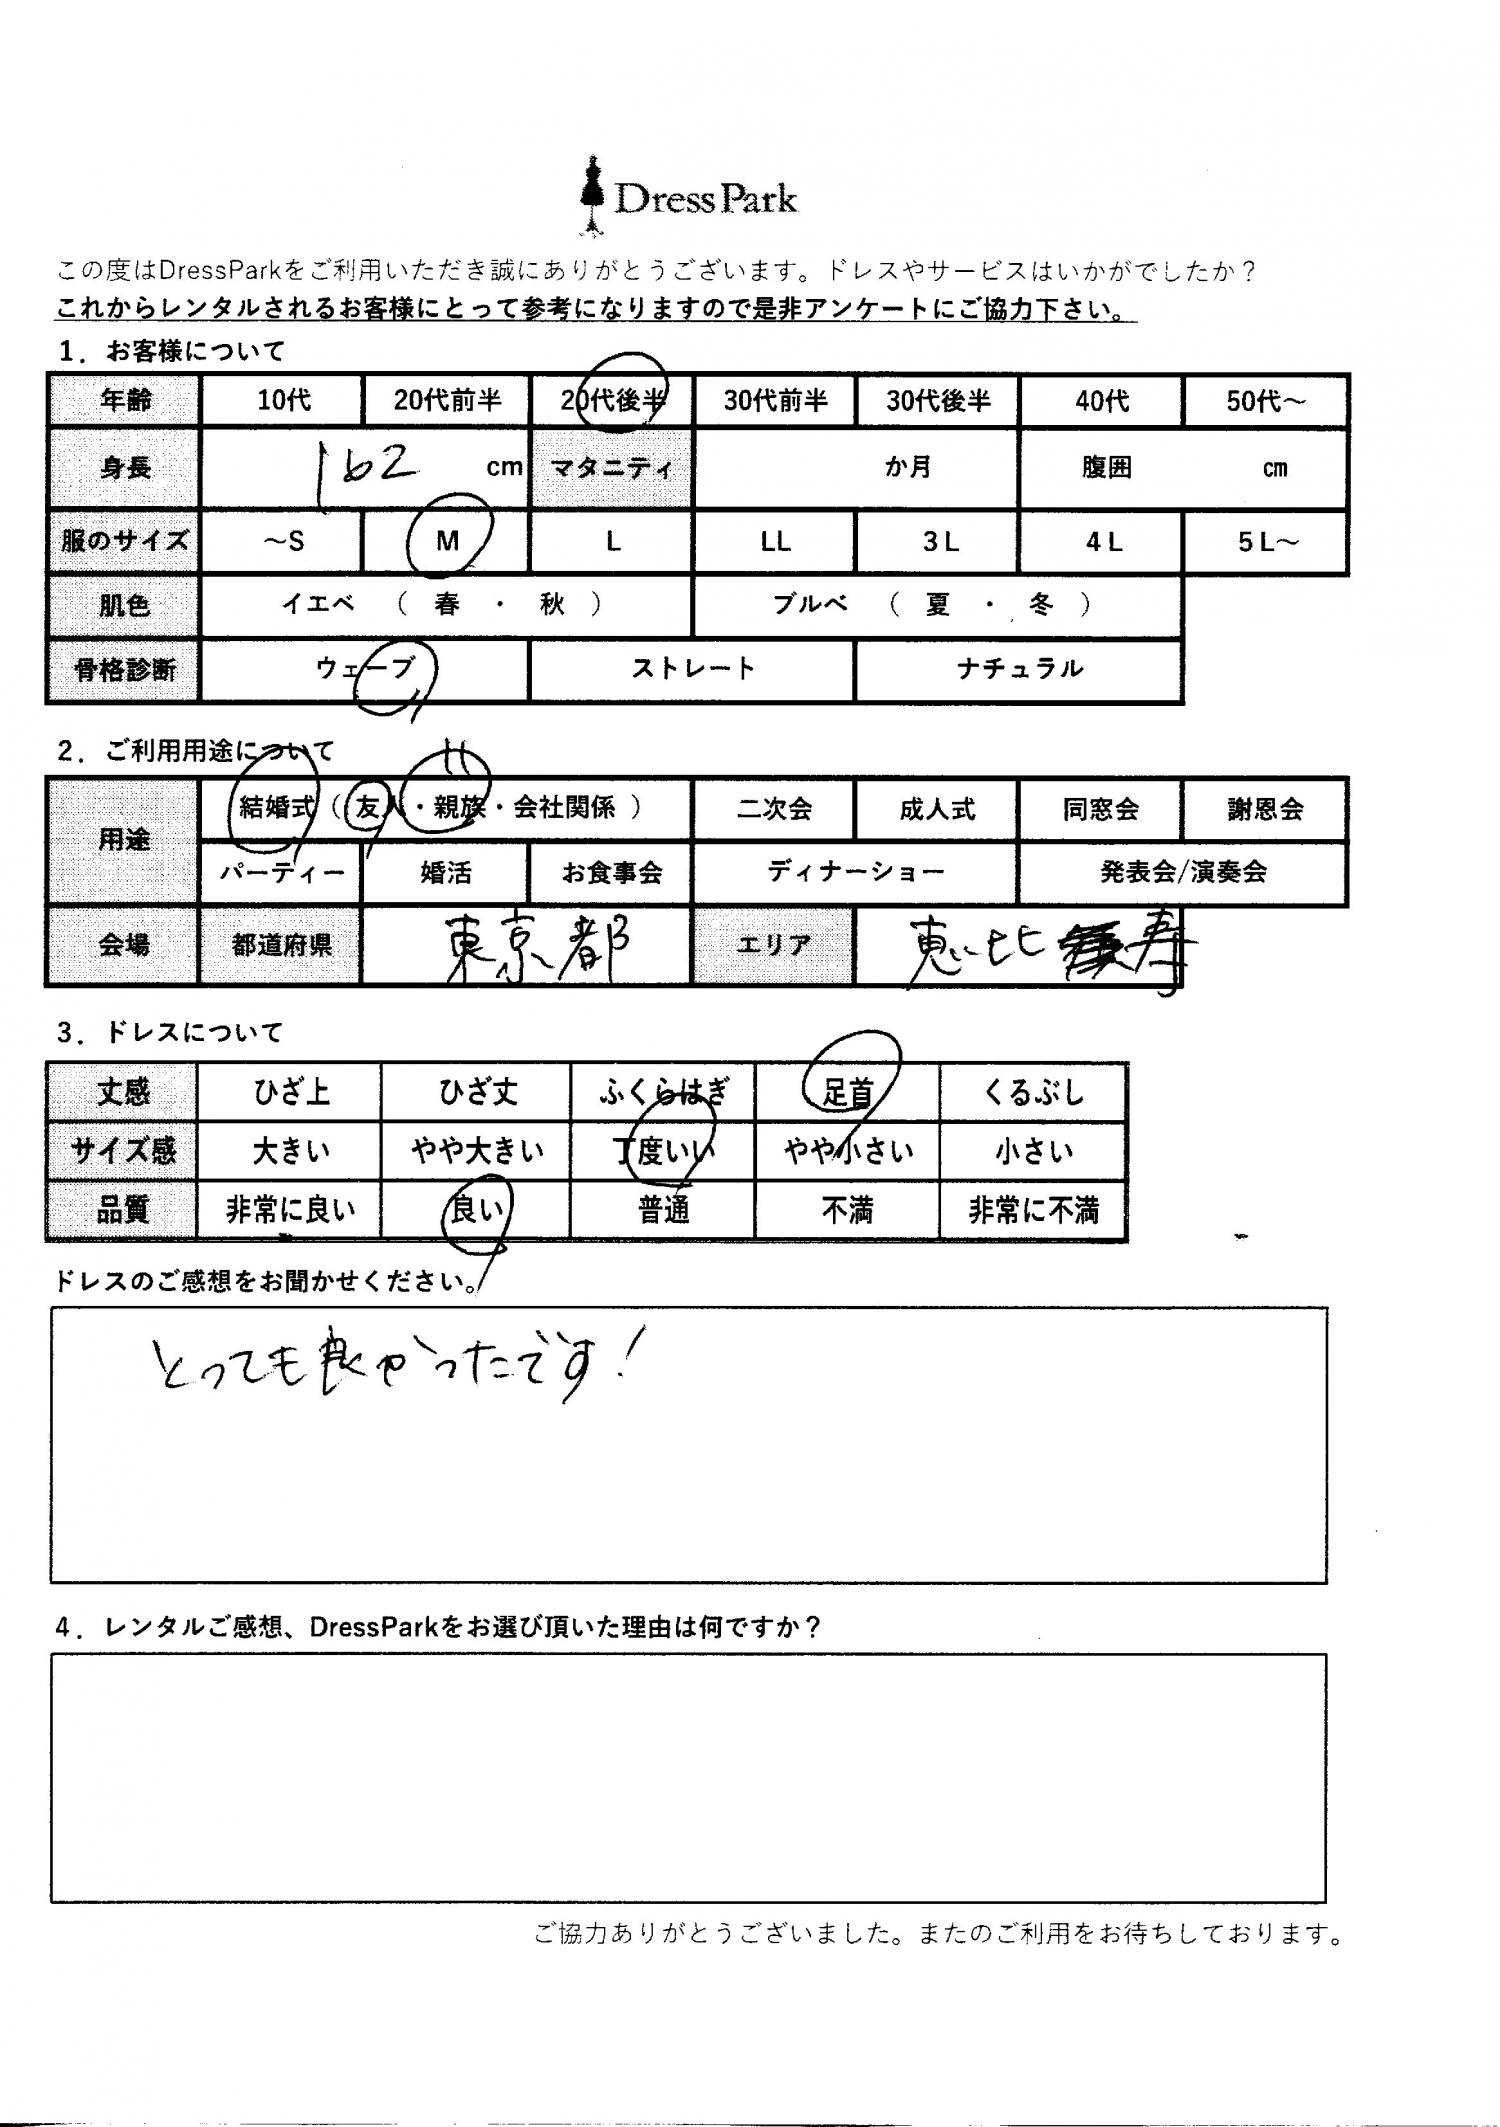 DressPark
この度はDressParkをご利用いただき誠にありがとうございます。ドレスやサービスはいかがでしたか？
これからレンタルされるお客様にとって参考になりますので是非アンケートにご協力下さい。
1．お客様について
年齢 10代 20代前半 20代後半 30代前半 30代後半 40代 50代～
身長 162 cm マタニティ か月 腹囲 ㎝
服のサイズ ～S M L LL 3L 4L 5L～
肌色 イエベ （ 春 ・ 秋 ） ブルベ （ 夏 ・ 冬 ）
骨格診断 ウェーブ ストレート ナチュラル
2．ご利用用途について
用途 結婚式（ 友人・親族・会社関係 ） 二次会 成人式 同窓会 謝恩会
パーティー 婚活 お食事会 ディナーショー 発表会/演奏会
会場 都道府県 東京都 エリア 恵比寿
3．ドレスについて
丈感 ひざ上 ひざ丈 ふくらはぎ 足首 くるぶし
サイズ感 大きい やや大きい 丁度いい やや小さい 小さい
品質 非常に良い 良い 普通 不満 非常に不満
ドレスのご感想をお聞かせください。
とっても良かったです！
4．レンタルご感想、DressParkをお選び頂いた理由は何ですか？
ご協力ありがとうございました。またのご利用をお待ちしております。